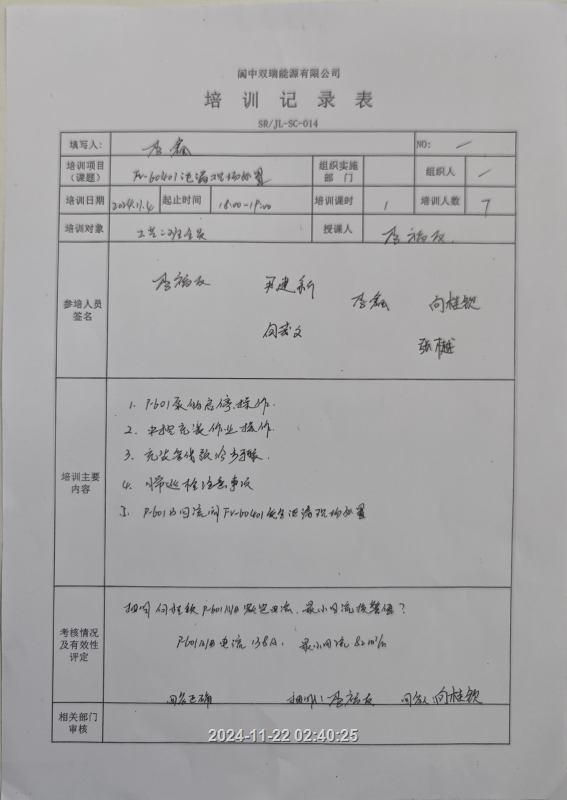 阆中双瑞能源有限公司
培训记录表
SR/JL-SC-014
填写人: 李鑫 NO: /
培训项目（课题） FV-60401泄漏现场处置 组织实施部门 组织人 /
培训日期 2024.11.4 起止时间 18:00-19:00 培训课时 1 培训人数 7
培训对象 工艺二班全员 授课人 李福友
参培人员签名
李福友 建新 李鑫 向桂钦
向 文 张 越
培训主要内容
1. P-601泵的启停操作.
2. 夹套充装作业操作.
3. 充装 步骤.
4. 日常巡检注意事项
5. P-601的回流阀FV-60401发生泄漏现场处置
考核情况及有效性评定
抽问向桂钦P-601A/B 电流、最小回流报警值?
P-601A/B电流138A, 最小回流82m³/h
回答正确 抽问人: 李福友 回答人 向桂钦
相关部门审核
2024-11-22 02:40:25